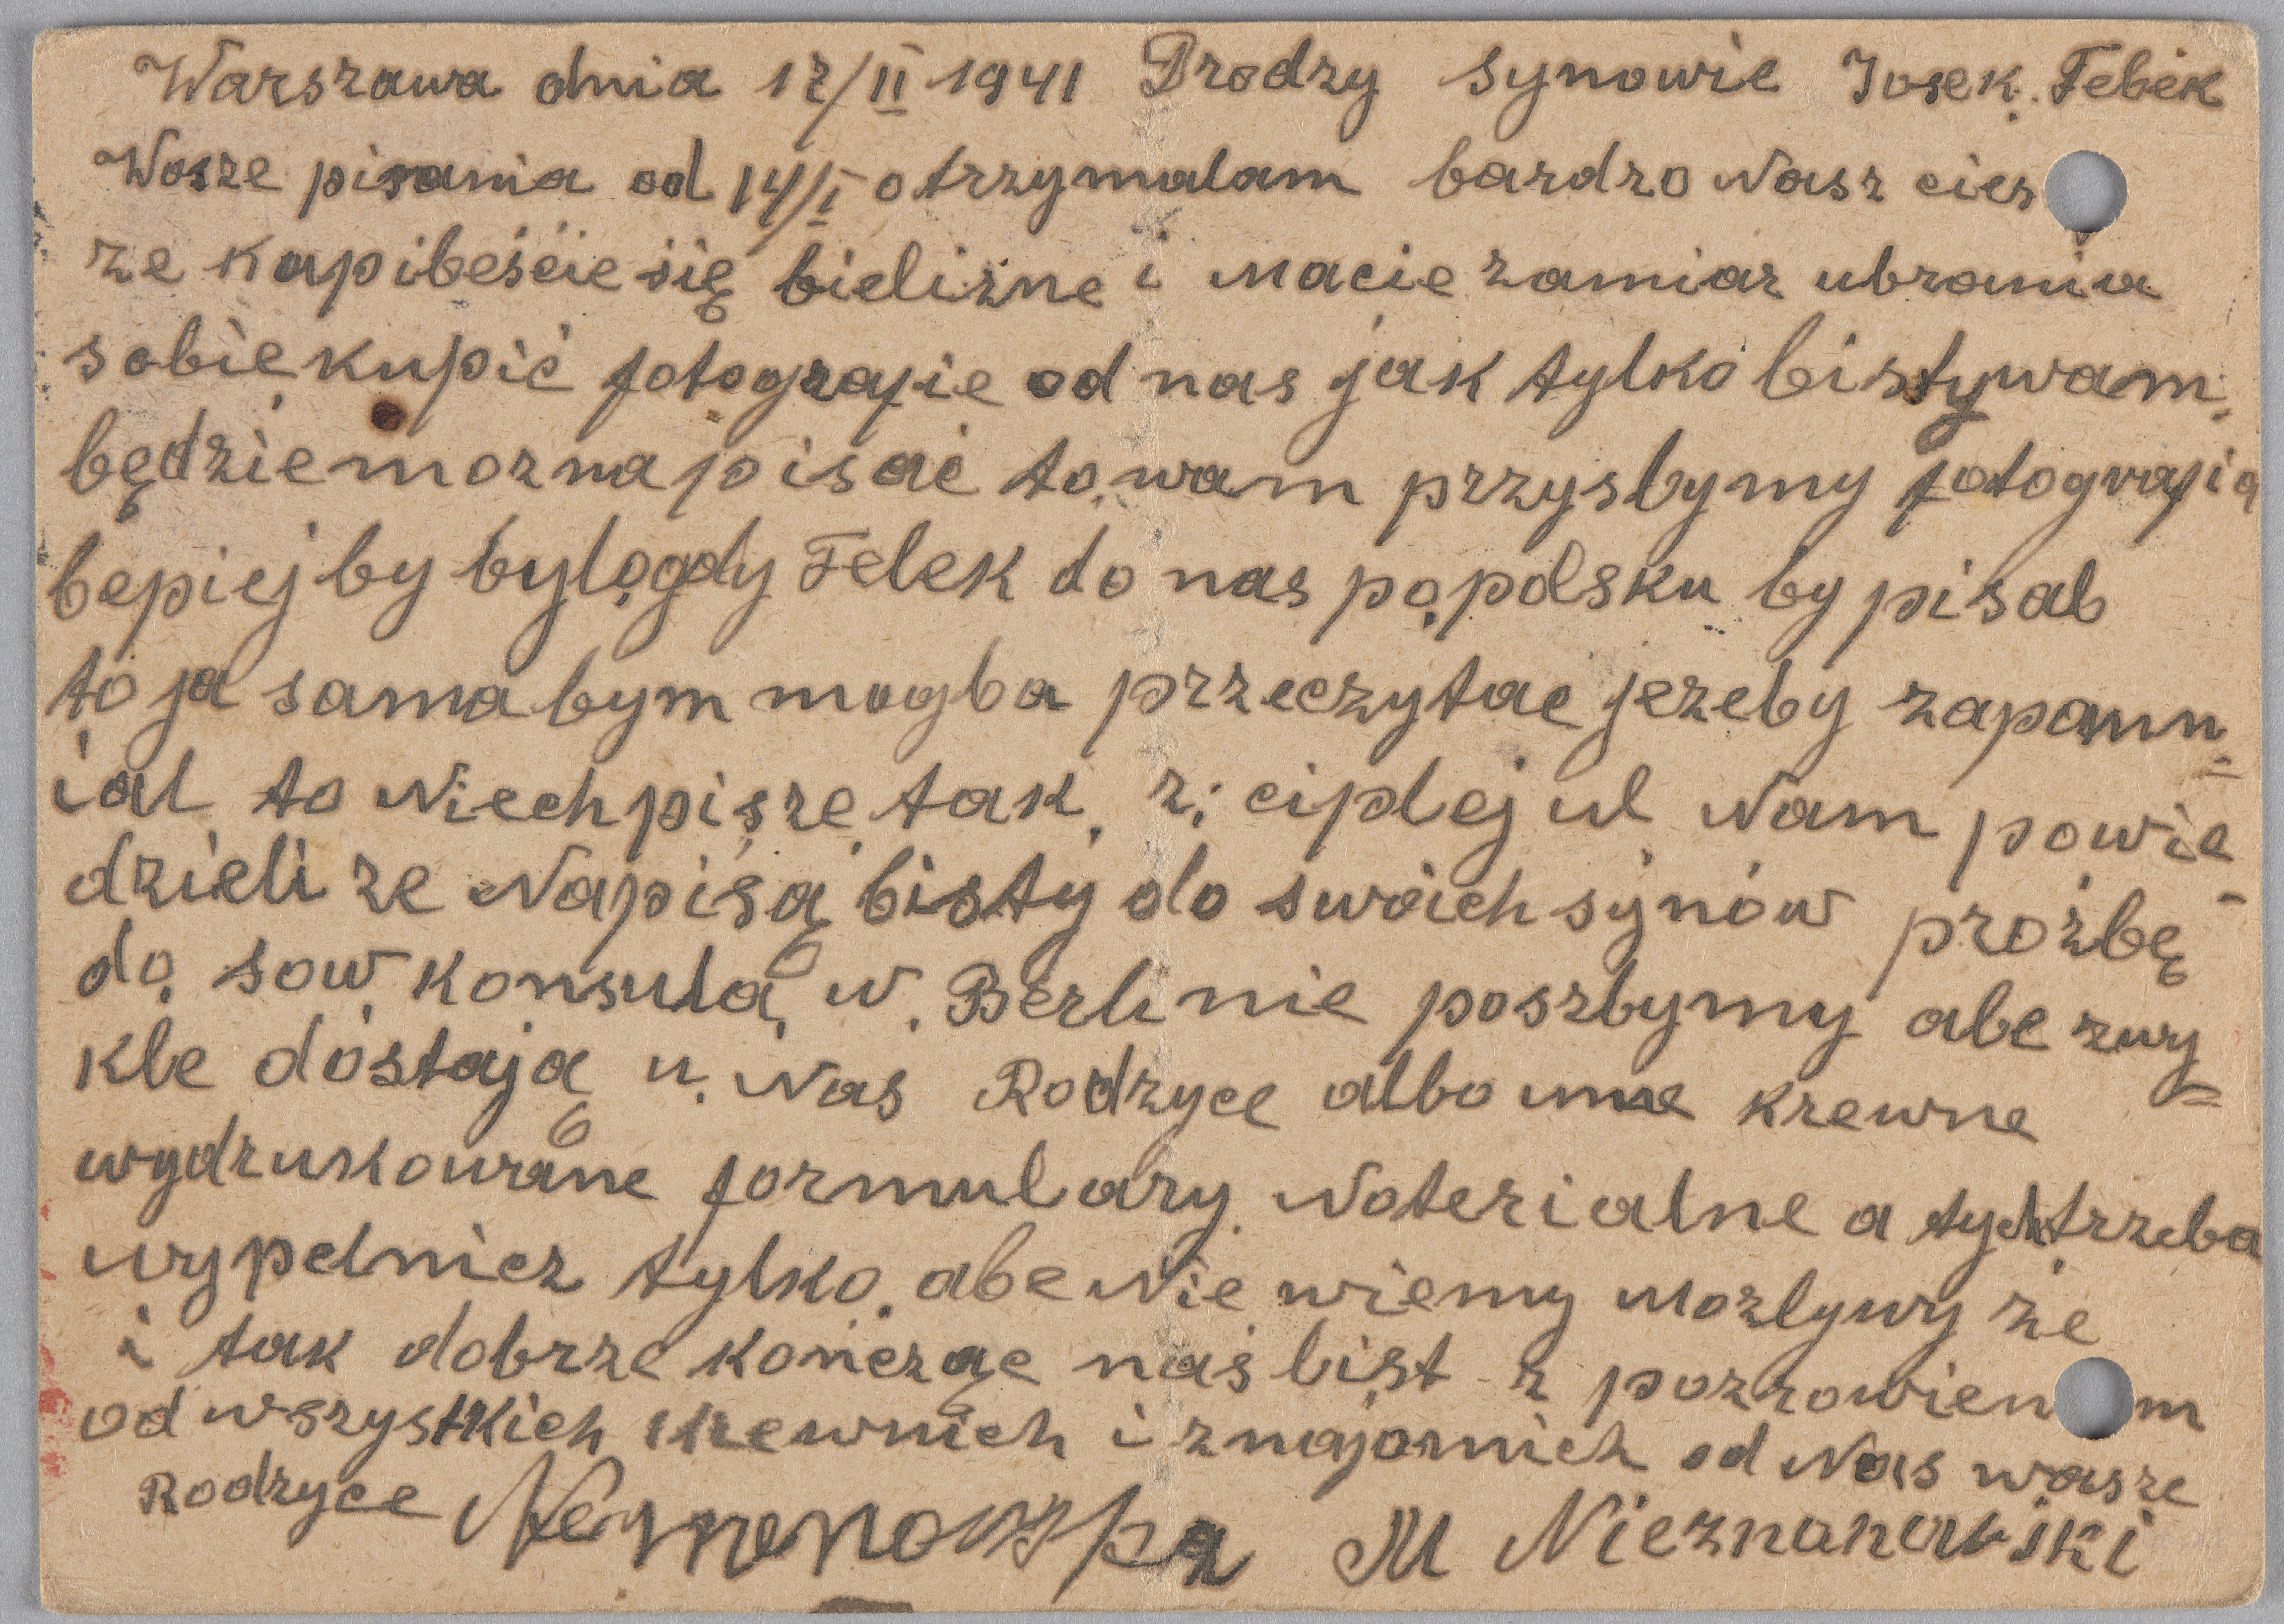 Warszawa dnia 12/II 1941 Drodzy synowie Josek. Felek
Wasze pisania od 14/I otrzymalam bardzo Nasz cies
ze kupiłeście się bielizne i macie zamiar ubrania
sobie kupić fotografie od nas jak tylko listy wam
będzie mozna pisać to wam przysłymy fotografią
łepiej by było gdy Felek do nas po polsku by pisał
to ja sama bym mogła przeczytac jezeły zapomn-
iał to Niech pisze tak z: ciplej ul Nam powie-
dzieli ze Napisą listy do swoich synów proźbę
do sow konsula w Berlinie poszlymy ale zwy=
kłe dostają u Nas Rodzyce albo inne krewne
wydrukowane formulary Noterialne a tych trzeba
wypelnicz tylko ale Nie wiemy mozlywy że
i tak dobrze kończąc naś list z pozrowien m
od wszystkich krewnich i znajomich od Nas wasze
Rodzyce M Nieznanowiski